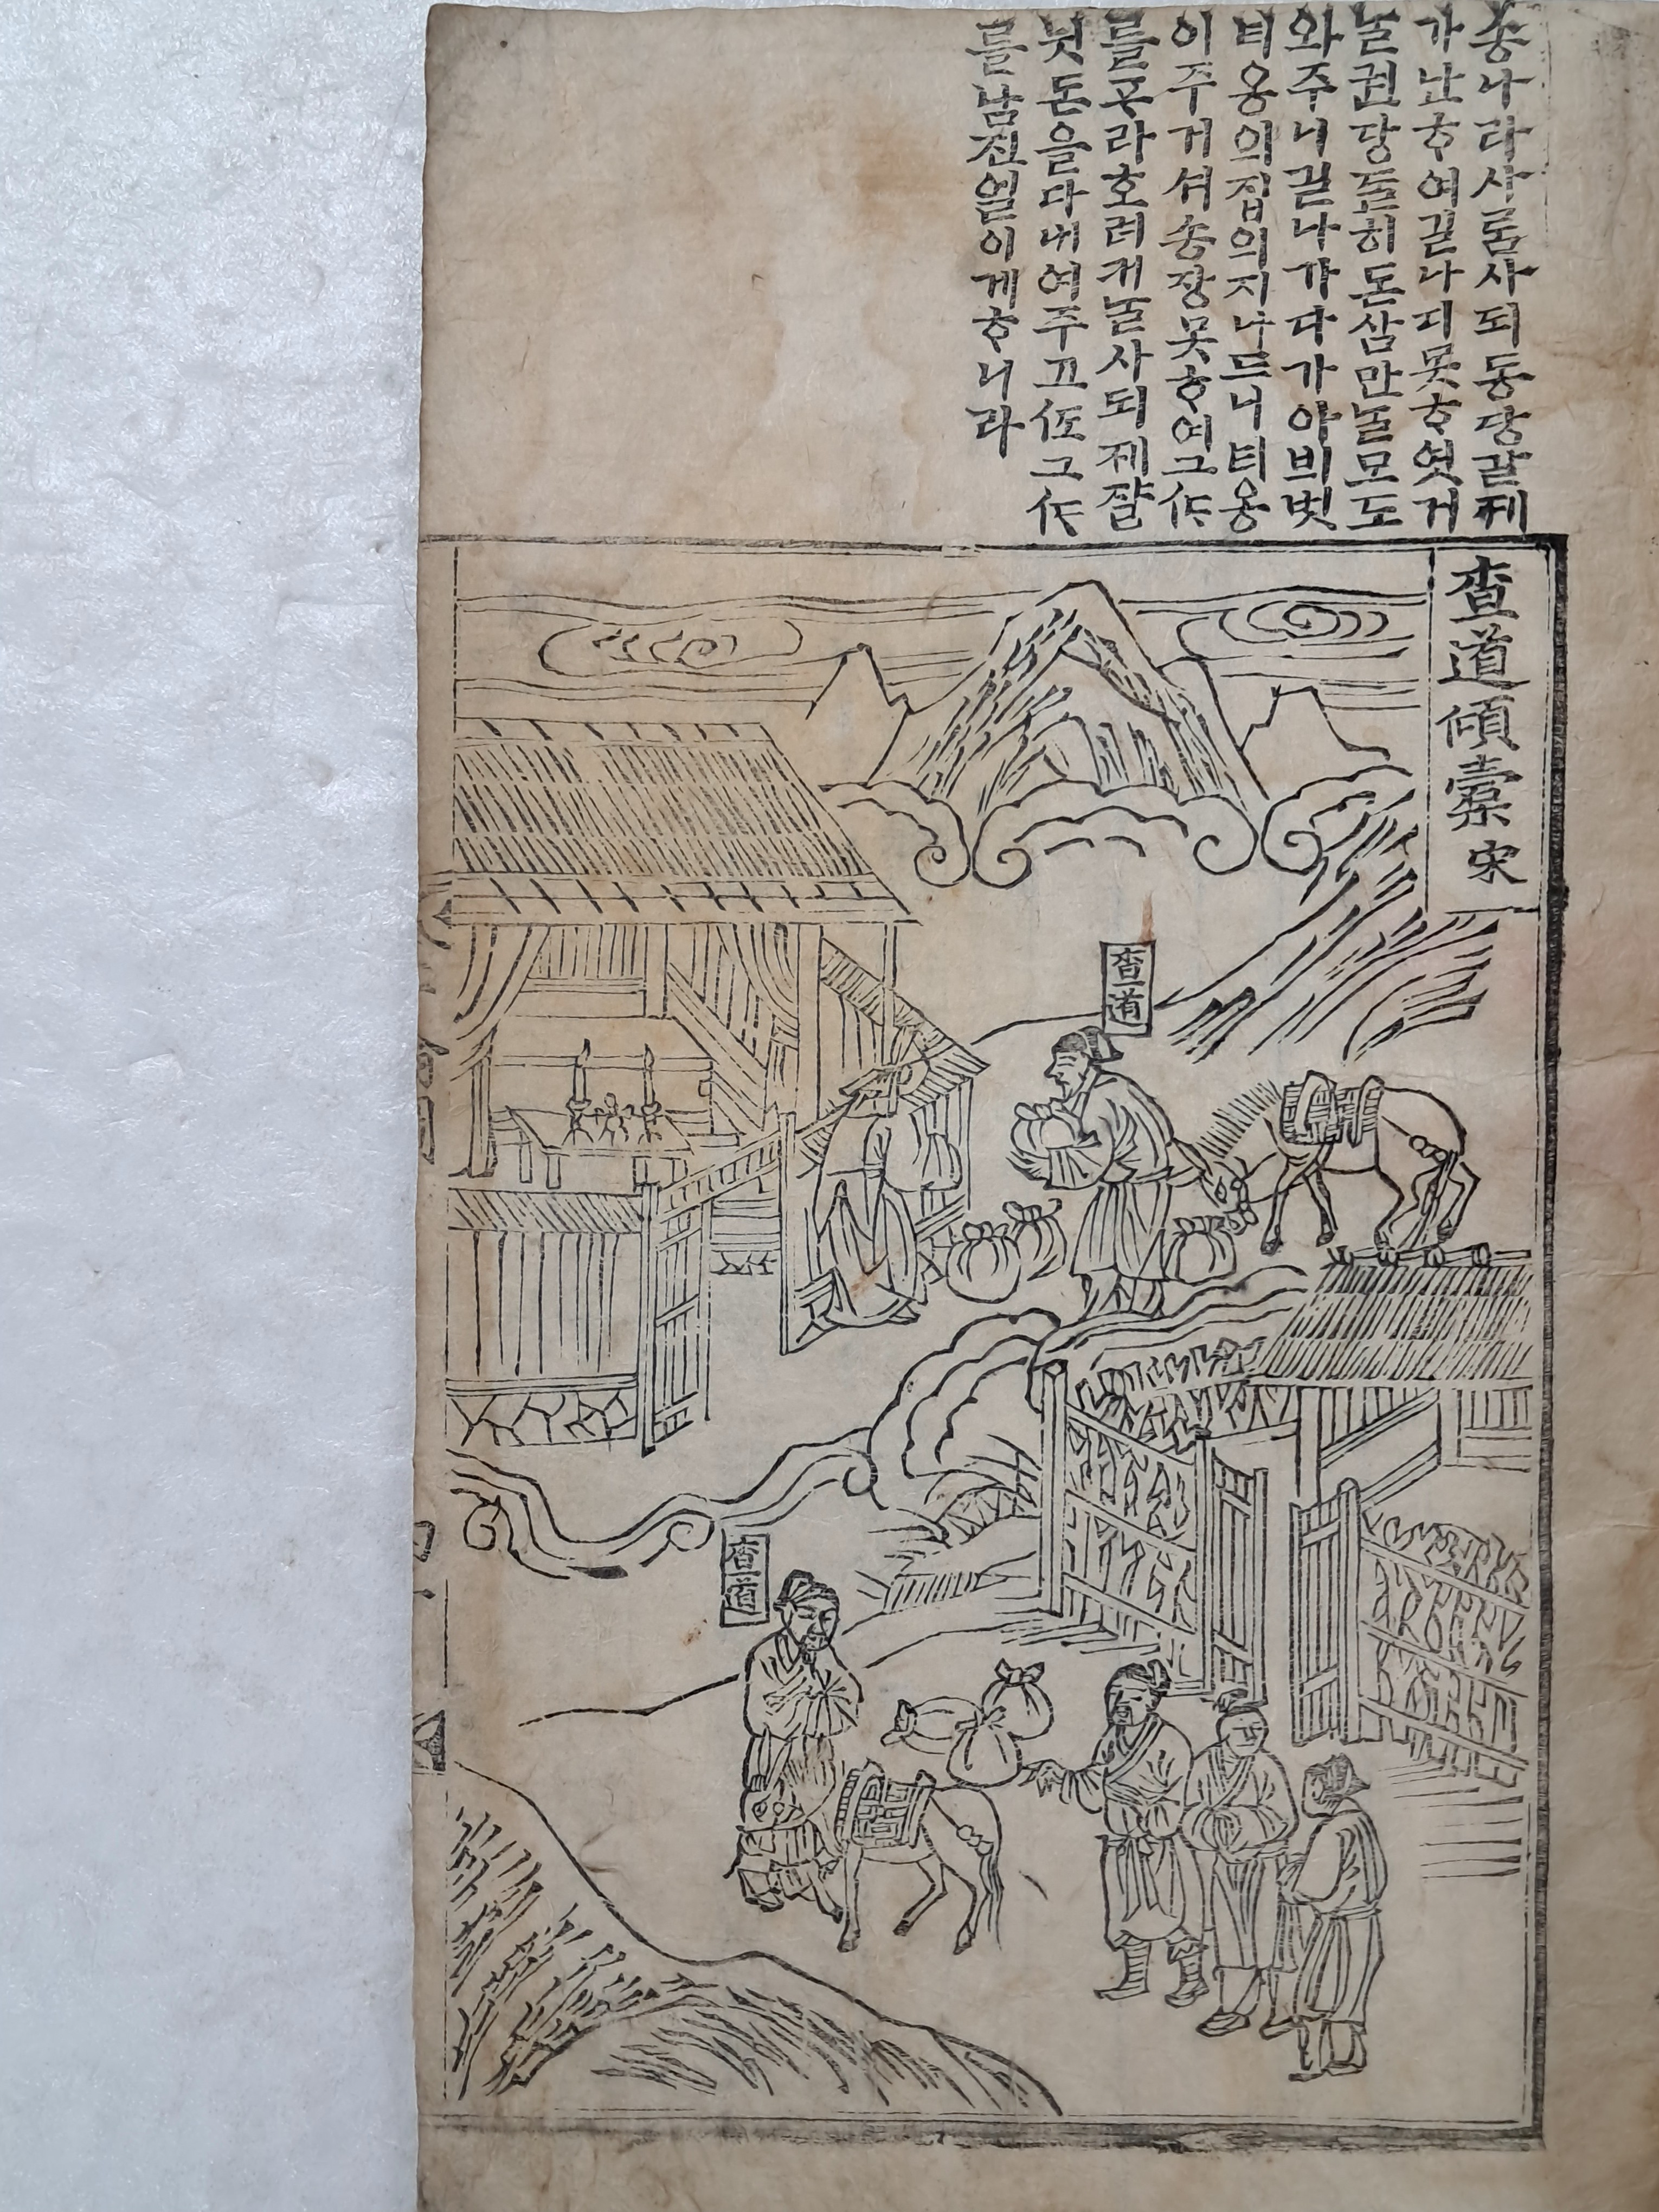 송나라사ᄅᆞᆷ사되동당갈제
가난ᄒᆞ여길나디못ᄒᆞ엿거
ᄂᆞᆯ권당ᄃᆞᆯ히돈삼만ᄂᆞᆯ모도
와주니길나가다가아븨벗
티옹의집의지나드니티옹
이주거셔송장못ᄒᆞ여그ᄯᆞᆯ
를ᄑᆞ라호려커ᄂᆞᆯ사되제쟐
돈을다내여주고ᄯᅩ그ᄯᆞᆯ
를남진얼이게ᄒᆞ니라
查道傾橐 宋
查道
查道